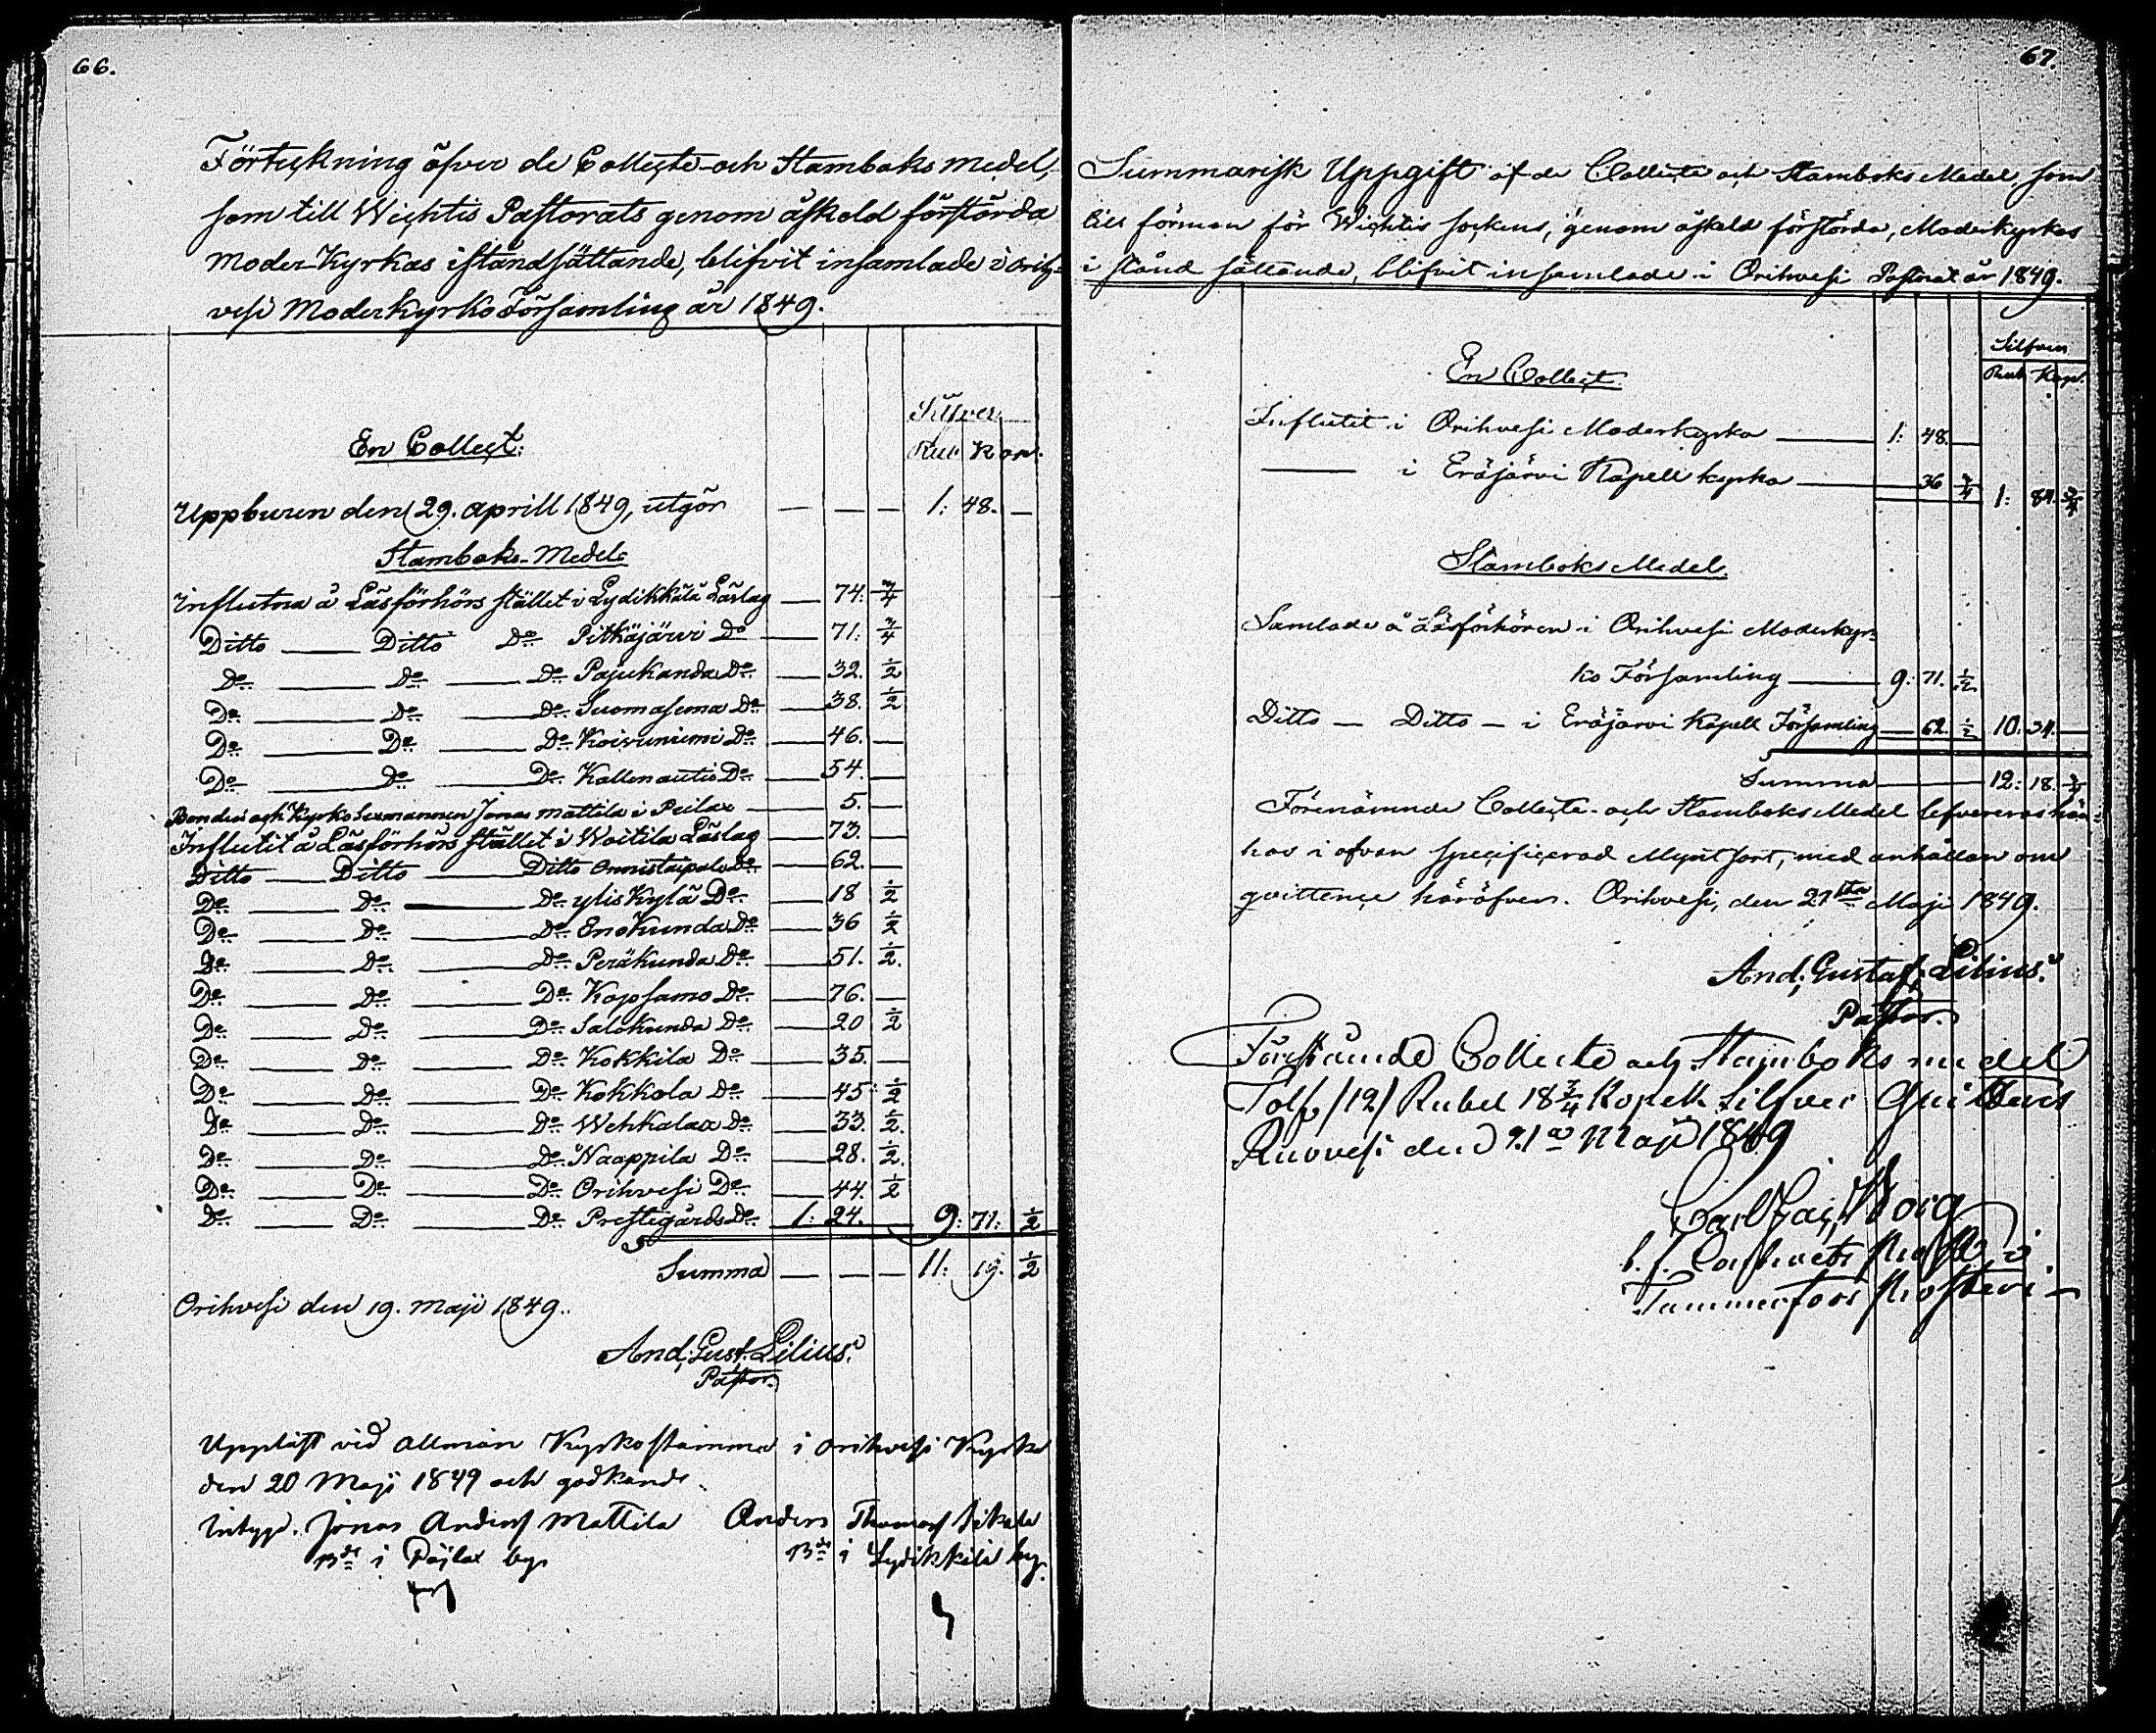 66.
Förteckning öfver de Collecte- och Stamboks medel,
som till Wichtis Pastorats genom åskeld förstörda
Moder-Kyrkas iståndsättande, blifvit insamlade i Orih-
vesi ModerkyrkoFörsamling år 1849.
Silfver
En Collect: Rub. Kop.
Uppburen den 29. aprill 1849, utgör — — — 1: 48. —
Stamboks-Medel:
Influtna å Läsförhörs stället i Lydikkälä Läslag — 74: 3/4
Ditto — Ditto Do Pitkäjärvi Do — 71: 3/4
Do — Do — Do Pajukanda Do — 32. 1/2
Do — Do — Do Suomasema Do — 38. 1/2
Do — Do — Do Koivuniemi Do — 46. —
Do — Do — Do Kallenautio Do — 54. —
Bonden och Kyrko Sexmannen Jonas Mattila i Peilax — 5. —
Influtit å Läsförhörs stället i Woitila Läslag — 73. —
Ditto — Ditto — Ditto Onnistaipale Do — 62. —
Do — Do — Do yliskylä Do — 18 1/2
Do — Do — Do Enokunda Do — 36 1/2
Do — Do — Do Peräkunda Do — 51. 1/2.
Do — Do — Do Kopsamo Do — 76. —
Do — Do — Do Salokunda Do — 20 1/2
Do — Do — Do Kokkila Do — 35. —
Do — Do — Do Kokkola Do — 45: 1/2
Do — Do — Do Wehkalax Do — 33. 1/2.
Do — Do — Do Naappila Do — 28. 1/2.
Do — Do — Do Orihvesi Do — 44. 1/2
Do — Do — Do Prestegårds Do 1: 24. — 9: 71: 1/2
Summa — — — 11: 19. 1/2
Orihvesi den 19. Maji 1849.
And. Gust. Lilius.
Pastor.
Uppläst vid allmän Kyrkostämma i Orihvesi Kyrka
den 20 Maji 1849 och godkänds.
Intyga. Jonas Andersf Mattila Anders Thomasf
Bde i Päjlax by Bde i Lydikkälä by.
67.
Summarisk Uppgift af de Collecte och Stamboks Medel, som
till förmon för Wichtis sockens, genom åskeld förstörda, Moderkyrkas
i stånd sättande, blifvit insamlade i Orihvesi Pastorat år 1849.
Silfver
En Collect. Rub Kop.
Influtit i Orihvesi Moderkyrka — 1: 48. —
— i Eräjärvi Kapell kyrka — 36 3/4 1: 84. 3/4
Stamboks Medel.
Samlade å Läsförhören i Orihvesi Moderkyr-
ko Församling — 9: 71. 1/2
Ditto — Ditto — i Eräjärvi Kapell Församling — 62. 1/2 10: 34. —
Summa — 12: 18. 3/4
Förenämnde Collecte- och Stamboks Medel lefvereras här-
hos i ofvan specificerad Myntsort, med anhållan om
qvittence häröfver. Orihvesi, den 21sta Maji 1849.
And. Gustaf Lilius.
Pastor.
Förestående Collecte och Stamboks medel
Tolf /12/ Rubel 18 3/4 Kopek Silfver Quitteras
Ruovesi den 21a Maji 1849
Carl Borg
Tammerfors Prosteri